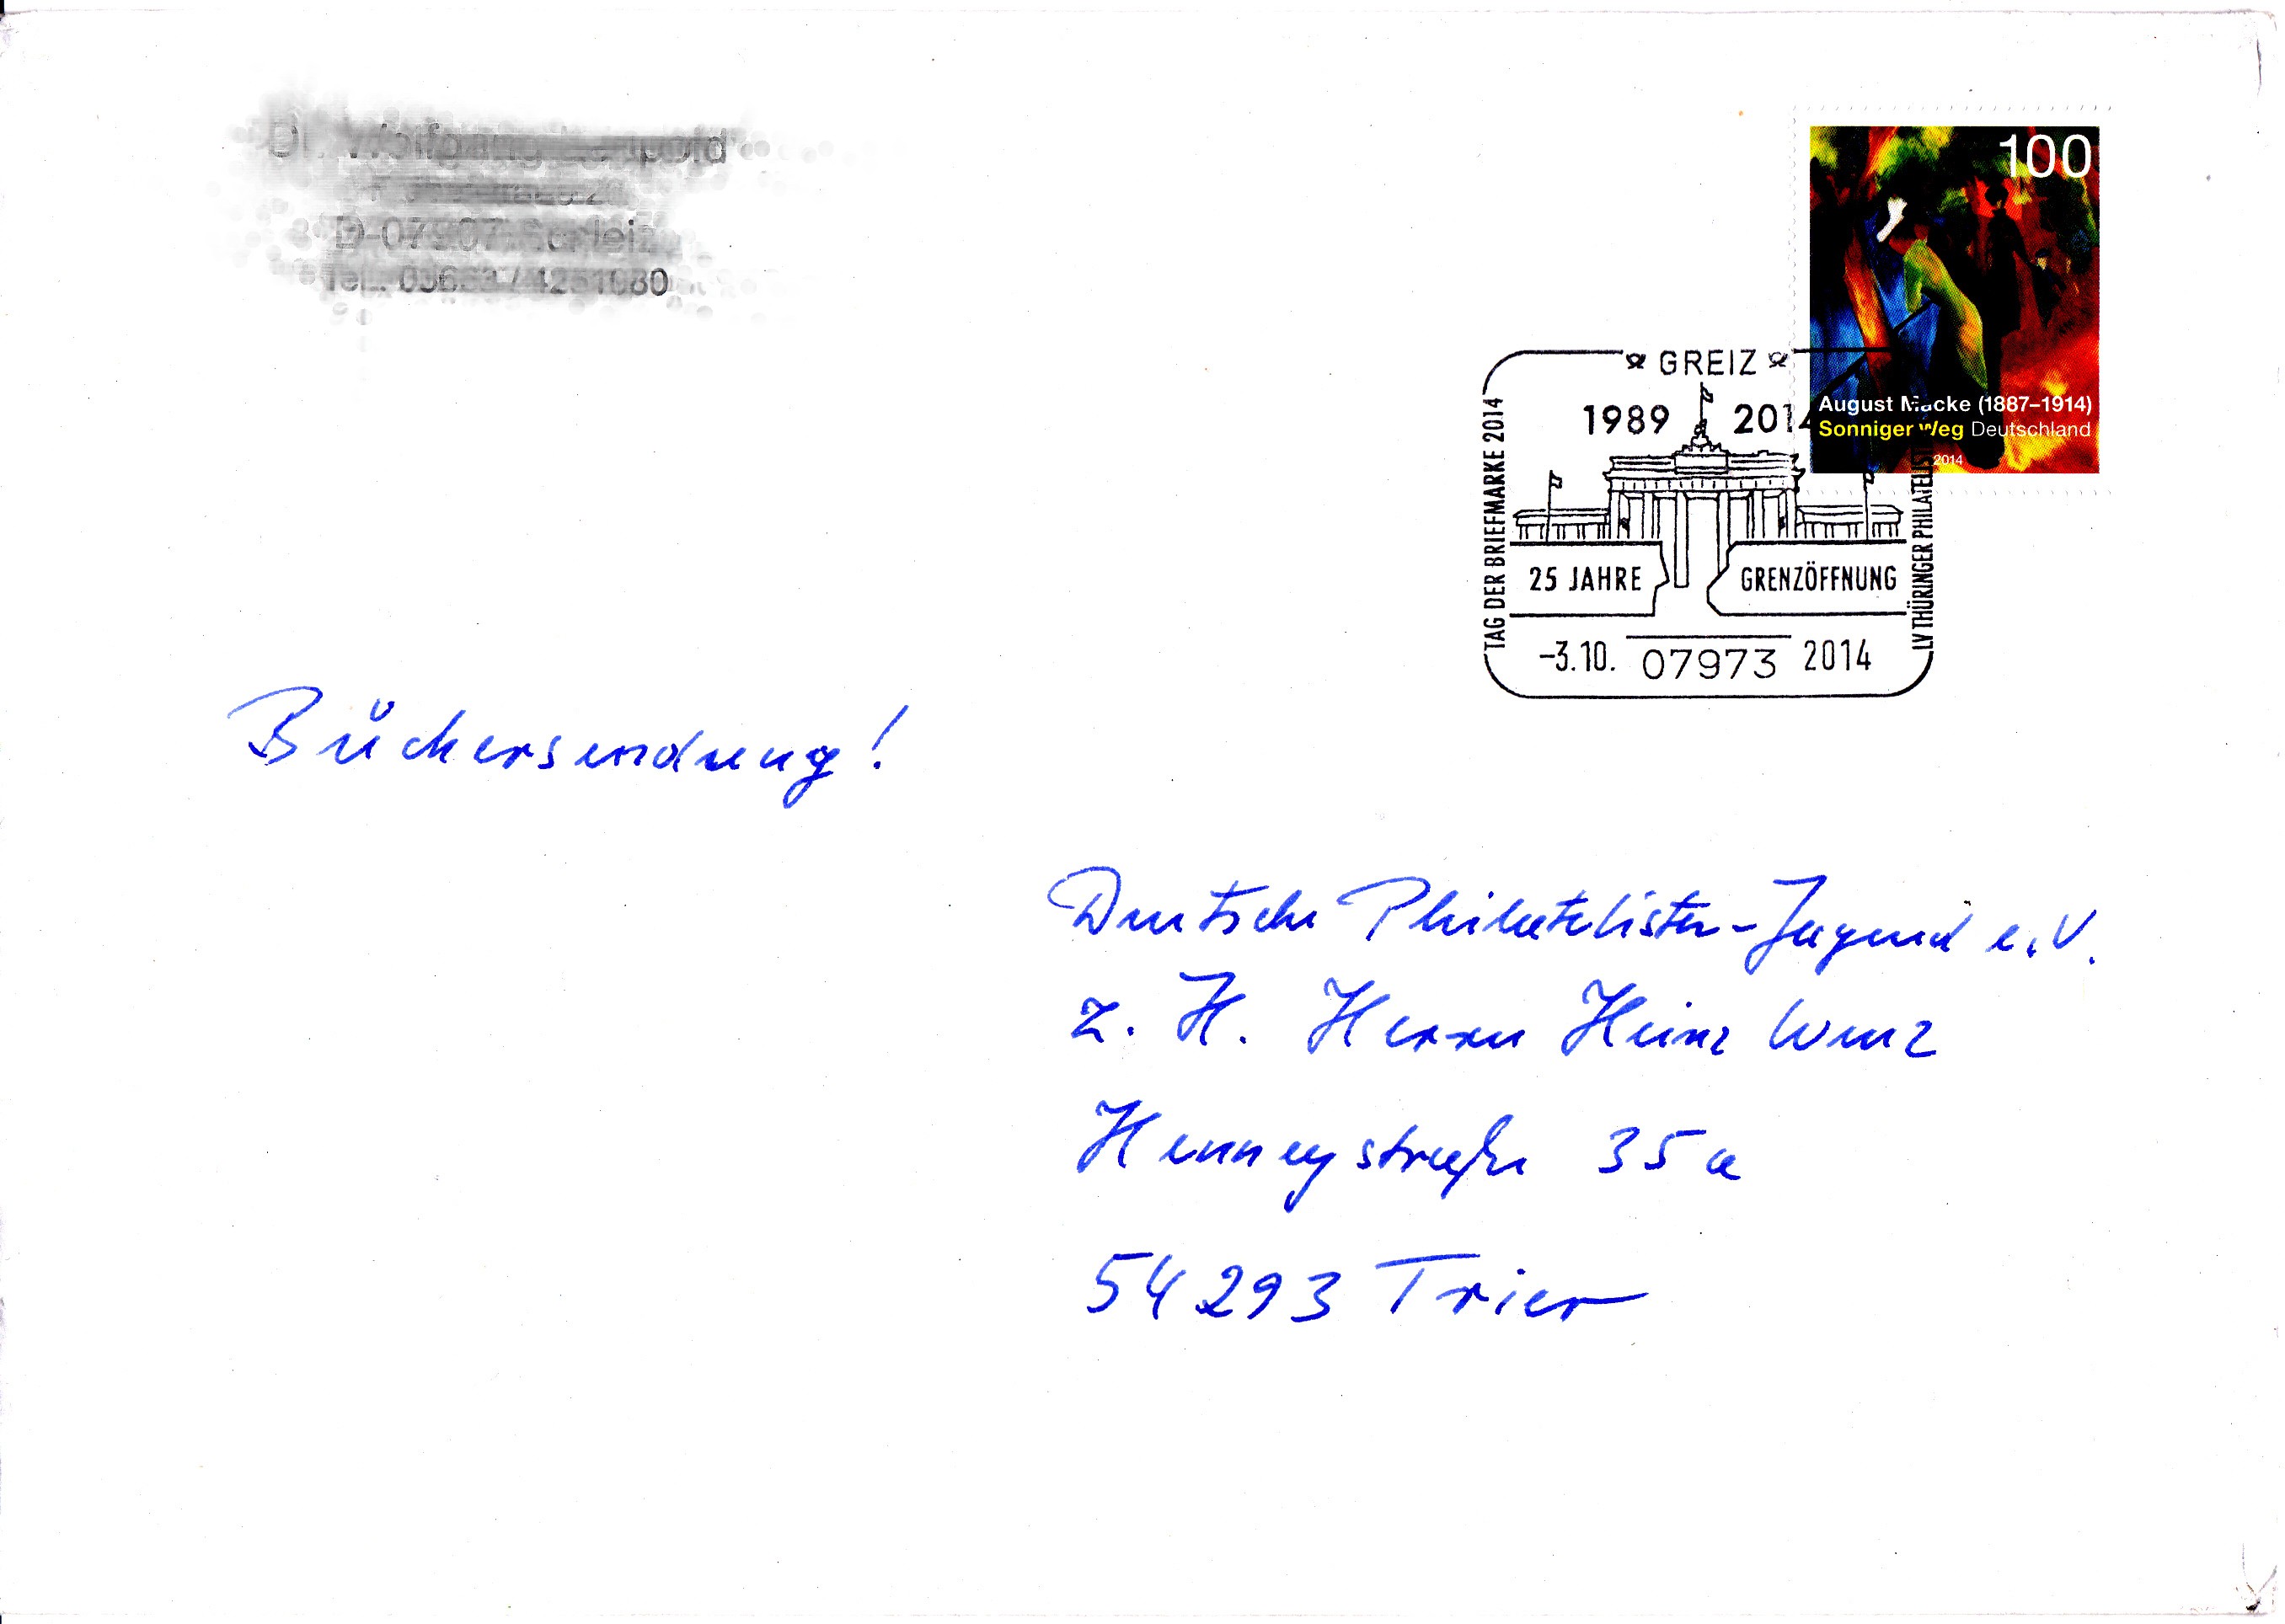 100
August Macke (1887–1914)
Sonniger Weg Deutschland
2014
GREIZ
1989 2014
TAG DER BRIEFMARKE 2014
LV THÜRINGER
25 JAHRE GRENZÖFFNUNG
-3.10. 07973 2014
Büchersendung!
Deutsche Philatelisten-Jugend e.V.
z. H. Herrn Heinz Wenz
35a
54293 Trier